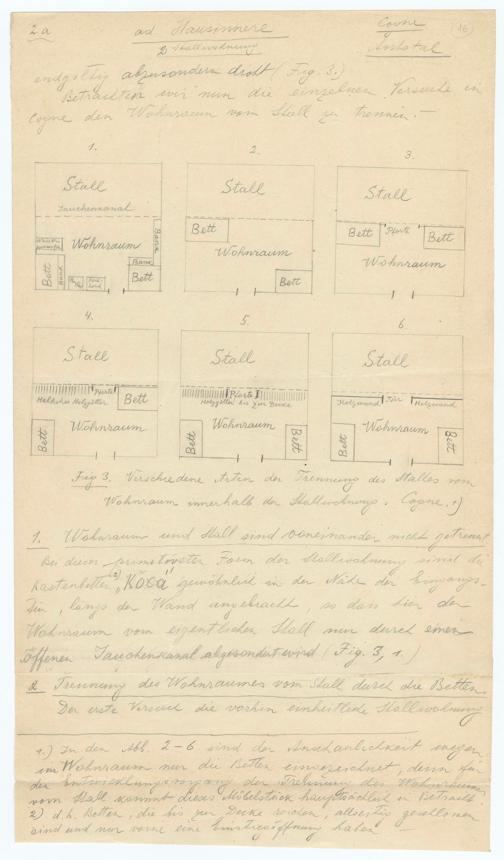 2.a ad Hausinnere Cogne (16)
2) Stallwohnung Aostatal
endgültig abzusondern droht (Fig. 3.)
Betrachten wir nun die einzelnen Versuche in
Cogne den Wohnraum vom Stall zu trennen. –
1. 2. 3.
Stall
Jauchenkanal
Wohnraum
Bank
Bett
Bank
Bank
Bett
Stall
Bett
Wohnraum
Bett
Stall
Bett Pforte Bett
Wohnraum
4. 5. 6
Stall
Pforte
Halbhohes Holzgitter
Bett
Wohnraum
Bett
Stall
Pforte
Holzgitter bis zur Decke
Wohnraum
Bett
Bett
Stall
Holzwand Tür Holzwand
Wohnraum
Bett
Bett
Fig 3. Verschiedene Arten der Trennung des Stalles vom
Wohnraum innerhalb der Stallwohnung. Cogne. 1)
1. Wohnraum und Stall sind voneinander nicht getrennt
Bei dieser primitivsten Form der Stallwohnung sind die
Kastenbetten 2) "Koca gewöhnlich in der Nähe der Eingangs-
tür, längs der Wand angebracht, so dass hier der
Wohnraum vom eigentlichen Stall nur durch einen
offenen Jauchenkanal abgesondert wird (Fig. 3, 1.)
2 Trennung des Wohnraumes vom Stall durch die Betten.
Der erste Versuch die vorhin einheitliche Stallwohnung
1.) In den Abb. 2-6 sind der Anschaulichkeit wegen
im Wohnraum nur die Betten eingezeichnet, denn für
der Entwicklungsvorgang der Trennung des Wohnraumes
vom Stall kommt dieses Möbelstück hauptsächlich in Betracht
2) d.h. Betten, die bis zur Decke reichen, allseitig geschlossen
sind und nur vorne eine Einstiegöffnung haben –